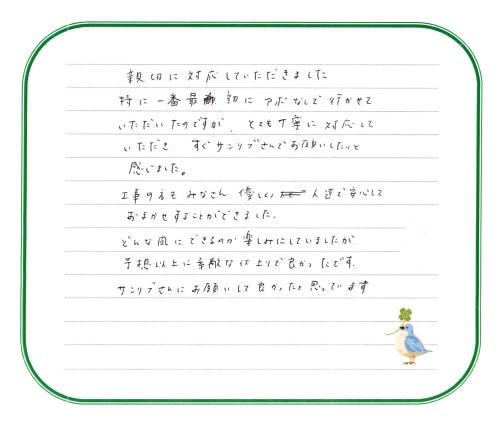 親切に対応していただきました
特に一番最初に アポなしで行かせて
いただいたのですが、とても丁寧に対応して
いただき すぐサンリブさんでお願いしたいと
感じました。
工事の方も みなさん 優しい 人達で安心して
おまかせすることができました。
どんな風にできるのか楽しみにしていましたが
予想以上に素敵な仕上りで良かったです。
サンリブさんにお願いして良かったと思っています